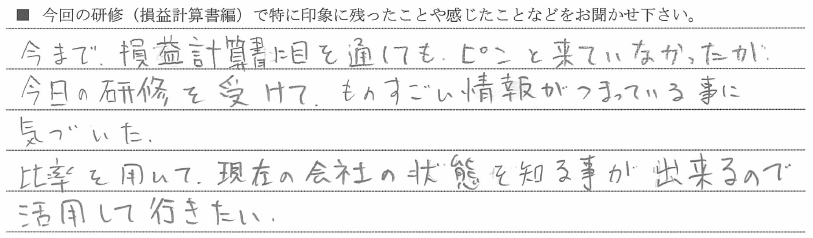 ■ 今回の研修（損益計算書編）で特に印象に残ったことや感じたことなどをお聞かせ下さい。
今まで、損益計算書に目を通しても、ピンと来ていなかったが、
今日の研修を受けて、ものすごい情報がつまっている事に
気づいた。
比率を用いて、現在の会社の状態を知る事が出来るので
活用して行きたい。